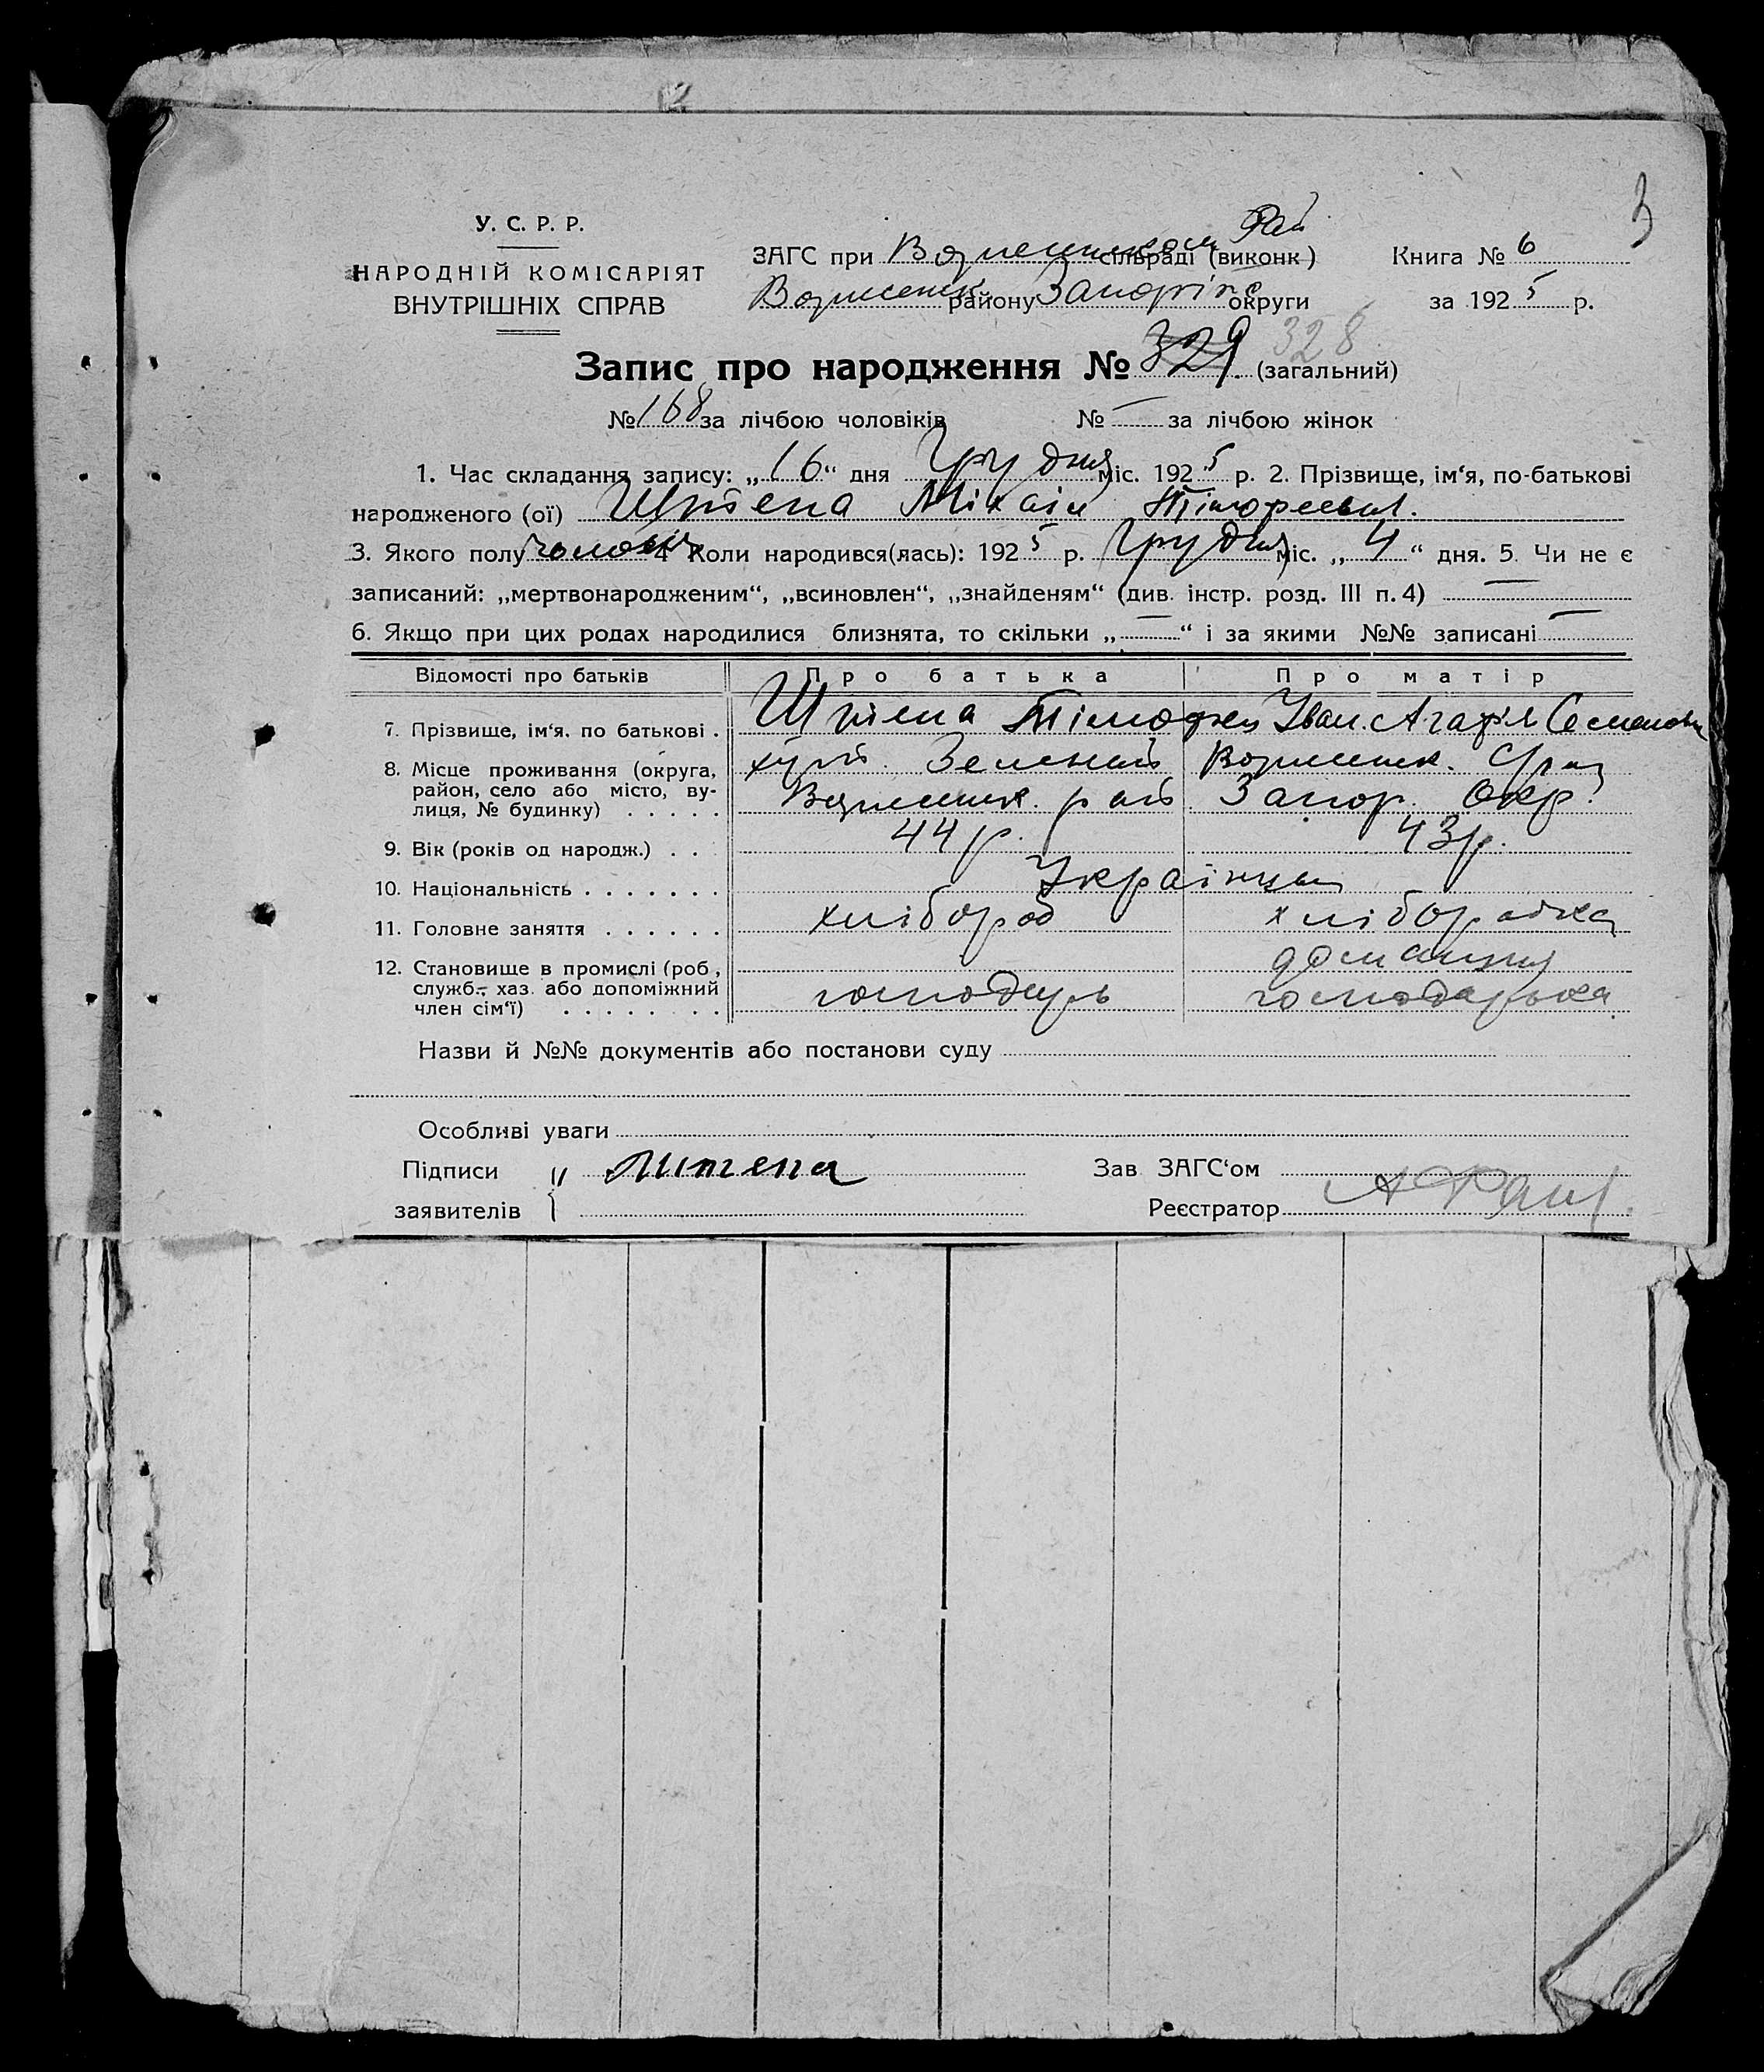 3
У. С. Р. Р.
НАРОДНІЙ КОМІСАРІЯТ
ВНУТРІШНІХ СПРАВ
Рай
ЗАГС при Вознесенском сільраді (виконк) Книга № 6
Вознесенск. району Запоріж округи за 1925 р.
Запис про народження № 329 328 (загальний)
№ 168 за лічбою чоловіків № — за лічбою жінок
1. Час складання запису: „16“ дня Грудня міс. 1925 р. 2. Прізвище, ім‘я, по-батькові
народженого (ої) Штепа Міхаіл Тімофеевич.
3. Якого полу чоловіч 4 Коли народився(лась): 1925 р. Грудня міс. „4“ дня. 5. Чи не є
записаний: „мертвонародженим“, „всиновлен“, „знайденям“ (див. інстр. розд. III п. 4) —
6. Якщо при цих родах народилися близнята, то скільки „—“ і за якими №№ записані —
Відомості про батьків Про батька Про матір
7. Прізвище, ім‘я. по батькові . Штепа Тімофей Іван. Агаф‘я Семенов
8. Місце проживання (округа, хут. Зелений Вознесенск.
район, село або місто, ву- Вознесенск. рай Запор. Окр.
лиця, № будинку) . . . . .
9. Вік (років од народж.) . . . 44 р. 43 р.
10. Національність . . . . . . . Українци
11. Головне заняття . . . . . . хлібороб хліборобка
12. Становище в промислі (роб, домашня
служб., хаз. або допоміжний господарь господарька
член сім‘ї) . . . . . . . .
Назви й №№ документів або постанови суду
Особливі уваги
Підписи Штепа Зав ЗАГС‘ом
заявителів Реєстратор